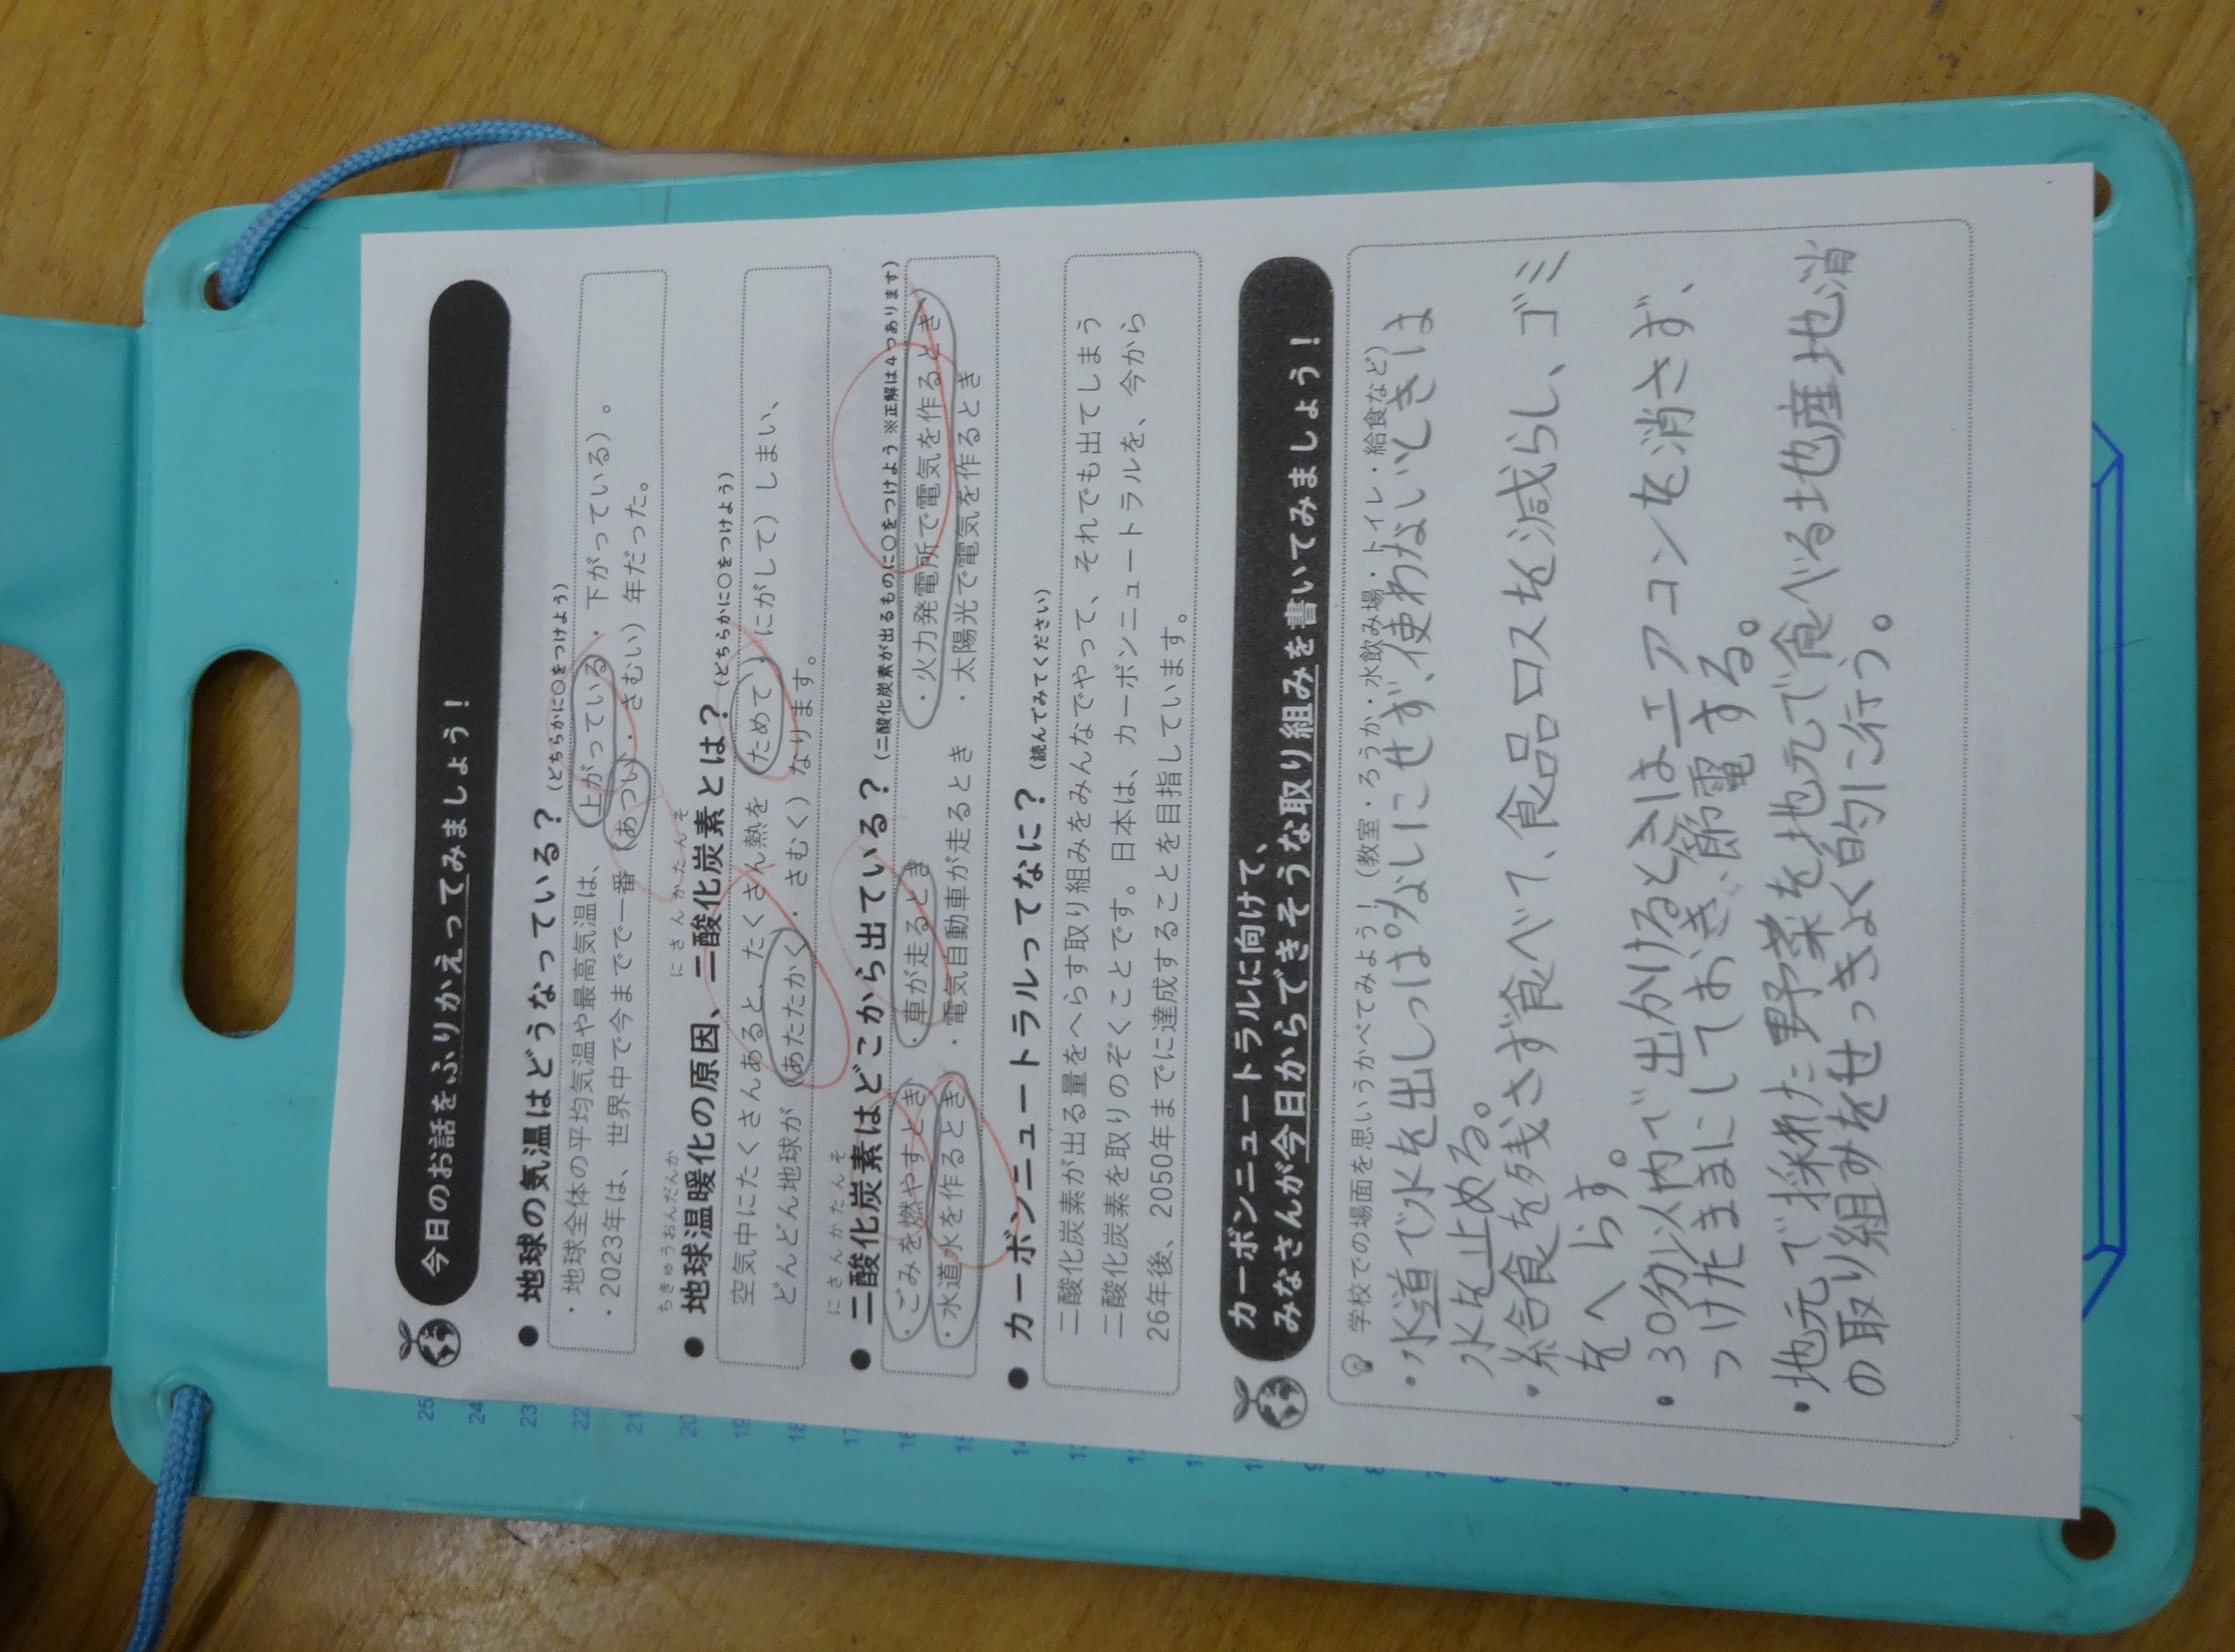 今日のお話をふりかえってみましょう！
● 地球の気温はどうなっている？（どちらかに○をつけよう）
・地球全体の平均気温や最高気温は、（上がっている・下がっている）。
・2023年は、世界中で今までで一番（あつい・さむい）年だった。
ちきゅうおんだんか にさんかたんそ
● 地球温暖化の原因、二酸化炭素とは？（どちらかに○をつけよう）
空気中にたくさんあると、たくさん熱を（ためて・にがして）しまい、
どんどん地球が（あたたかく・さむく）なります。
にさんかたんそ
● 二酸化炭素はどこから出ている？（二酸化炭素が出るものに○をつけよう ※正解は4つあります）
・ごみを燃やすとき ・車が走るとき ・火力発電所で電気を作るとき
・水道水を作るとき ・電気自動車が走るとき ・太陽光で電気を作るとき
● カーボンニュートラルってなに？（読んでみてください）
二酸化炭素が出る量をへらす取り組みをみんなでやって、それでも出てしまう
二酸化炭素を取りのぞくことです。日本は、カーボンニュートラルを、今から
26年後、2050年までに達成することを目指しています。
カーボンニュートラルに向けて、
みなさんが今日からできそうな取り組みを書いてみましょう！
学校での場面を思いうかべてみよう！（教室・ろうか・水飲み場・トイレ・給食など）
・水道で水を出しっぱなしにせず、使わないときは
水を止める。
・給食を残さず食べて、食品ロスを減らし、ゴミ
をへらす。
・30分以内で出かけるときはエアコンを消さず、
つけたままにしておき、節電する。
・地元で採れた野菜を地元で食べる地産地消
の取り組みをせっきょく的に行う。
25
24
23
22
21
20
19
18
17
16
15
14